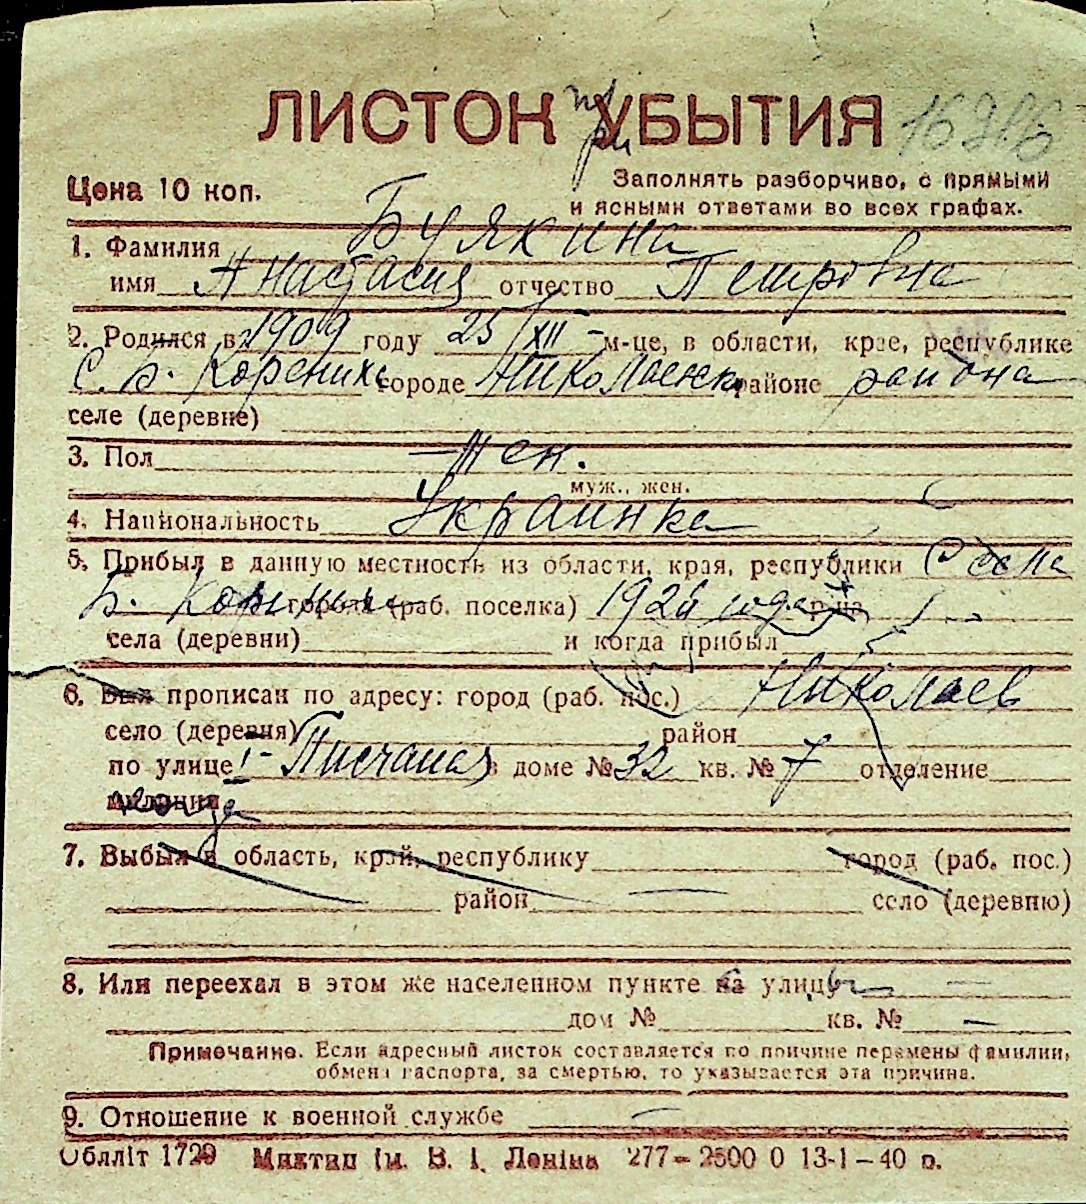 ЛИСТОК УБЫТИЯ
при
16986
Цена 10 коп.
Заполнять разборчиво, с прямыми
и ясными ответами во всех графах.
1. Фамилия Буякина
имя Анастасия отчество Петровна
2. Родился в 1909 году 25/XII - м-це, в области, крае, республике
С. Б. Корениха городе Николаевск районе района
селе (деревне)
3. Пол Жен.
муж., жен.
4. Национальность Украинка
5. Прибыл в данную местность из области, края, республики С села
Б. Корениха города (раб. поселка) 1926 года
села (деревни) и когда прибыл
6. Был прописан по адресу: город (раб. пос.) Николаев
село (деревня) район
по улице 1-Писчаная в доме № 32 кв. № 7 отделение
милиции
7. Выбыл в область, край, республику город (раб. пос.)
район — село (деревню)
8. Или переехал в этом же населенном пункте на улицу —
дом № кв. № —
Примечание. Если адресный листок составляется по причине перемены фамилии,
обмена паспорта, за смертью, то указывается эта причина.
9. Отношение к военной службе —
Обллiт 1729 Миктип iм. В. I. Ленiна 277—2500 0 13-1—40 р.